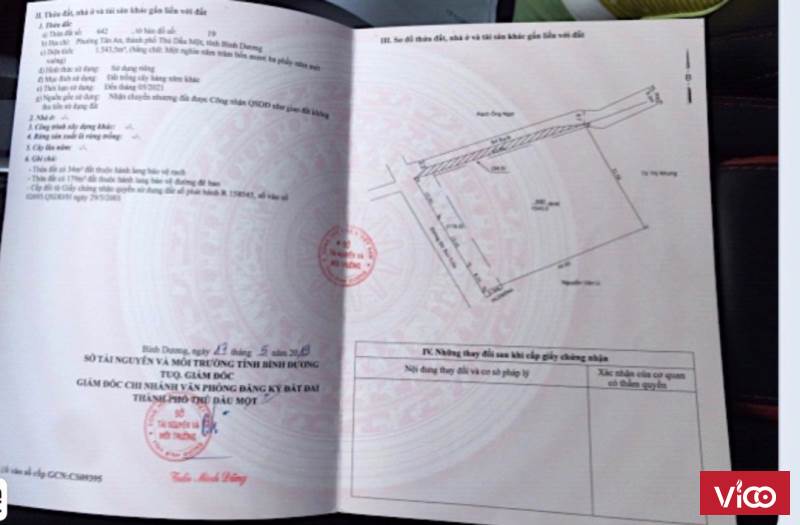 II. Thửa đất, nhà ở và tài sản khác gắn liền với đất
1. Thửa đất:
a) Thửa đất số: 642 , tờ bản đồ số: 19
b) Địa chỉ: Phường Tân An, thành phố Thủ Dầu Một, tỉnh Bình Dương
c) Diện tích: 1.543,5m², (bằng chữ: Một nghìn năm trăm bốn mươi ba phẩy năm mét
vuông)
d) Hình thức sử dụng: Sử dụng riêng
đ) Mục đích sử dụng: Đất trồng cây hàng năm khác
e) Thời hạn sử dụng: Đến tháng 05/2021
g) Nguồn gốc sử dụng: Nhận chuyển nhượng đất được Công nhận QSDĐ như giao đất không
thu tiền sử dụng đất
2. Nhà ở: -/-
3. Công trình xây dựng khác: -/-
4. Rừng sản xuất là rừng trồng: -/-
5. Cây lâu năm: -/-
6. Ghi chú:
- Thửa đất có 34m² đất thuộc hành lang bảo vệ rạch
- Thửa đất có 179m² đất thuộc hành lang bảo vệ đường đê bao
- Cấp đổi từ Giấy chứng nhận quyền sử dụng đất số phát hành R 158545, số vào sổ
ngày 29/5/2001
Bình Dương, ngày 17 tháng 5 năm 2019
SỞ TÀI NGUYÊN VÀ MÔI TRƯỜNG TỈNH BÌNH DƯƠNG
TUQ. GIÁM ĐỐC
GIÁM ĐỐC CHI NHÁNH VĂN PHÒNG ĐĂNG KÝ ĐẤT ĐAI
THÀNH PHỐ THỦ DẦU MỘT
SỞ
TÀI NGUYÊN VÀ
MÔI TRƯỜNG
Trần Minh Dũng
Số vào sổ cấp GCN:CS09395
III. Sơ đồ thửa đất, nhà ở và tài sản khác gắn liền với đất
Rạch Ông Ngợi
Nguyễn Văn Lí
SỞ
TÀI NGUYÊN VÀ
MÔI TRƯỜNG
IV. Những thay đổi sau khi cấp giấy chứng nhận
Nội dung thay đổi và cơ sở pháp lý
Xác nhận của cơ quan
có thẩm quyền
vico